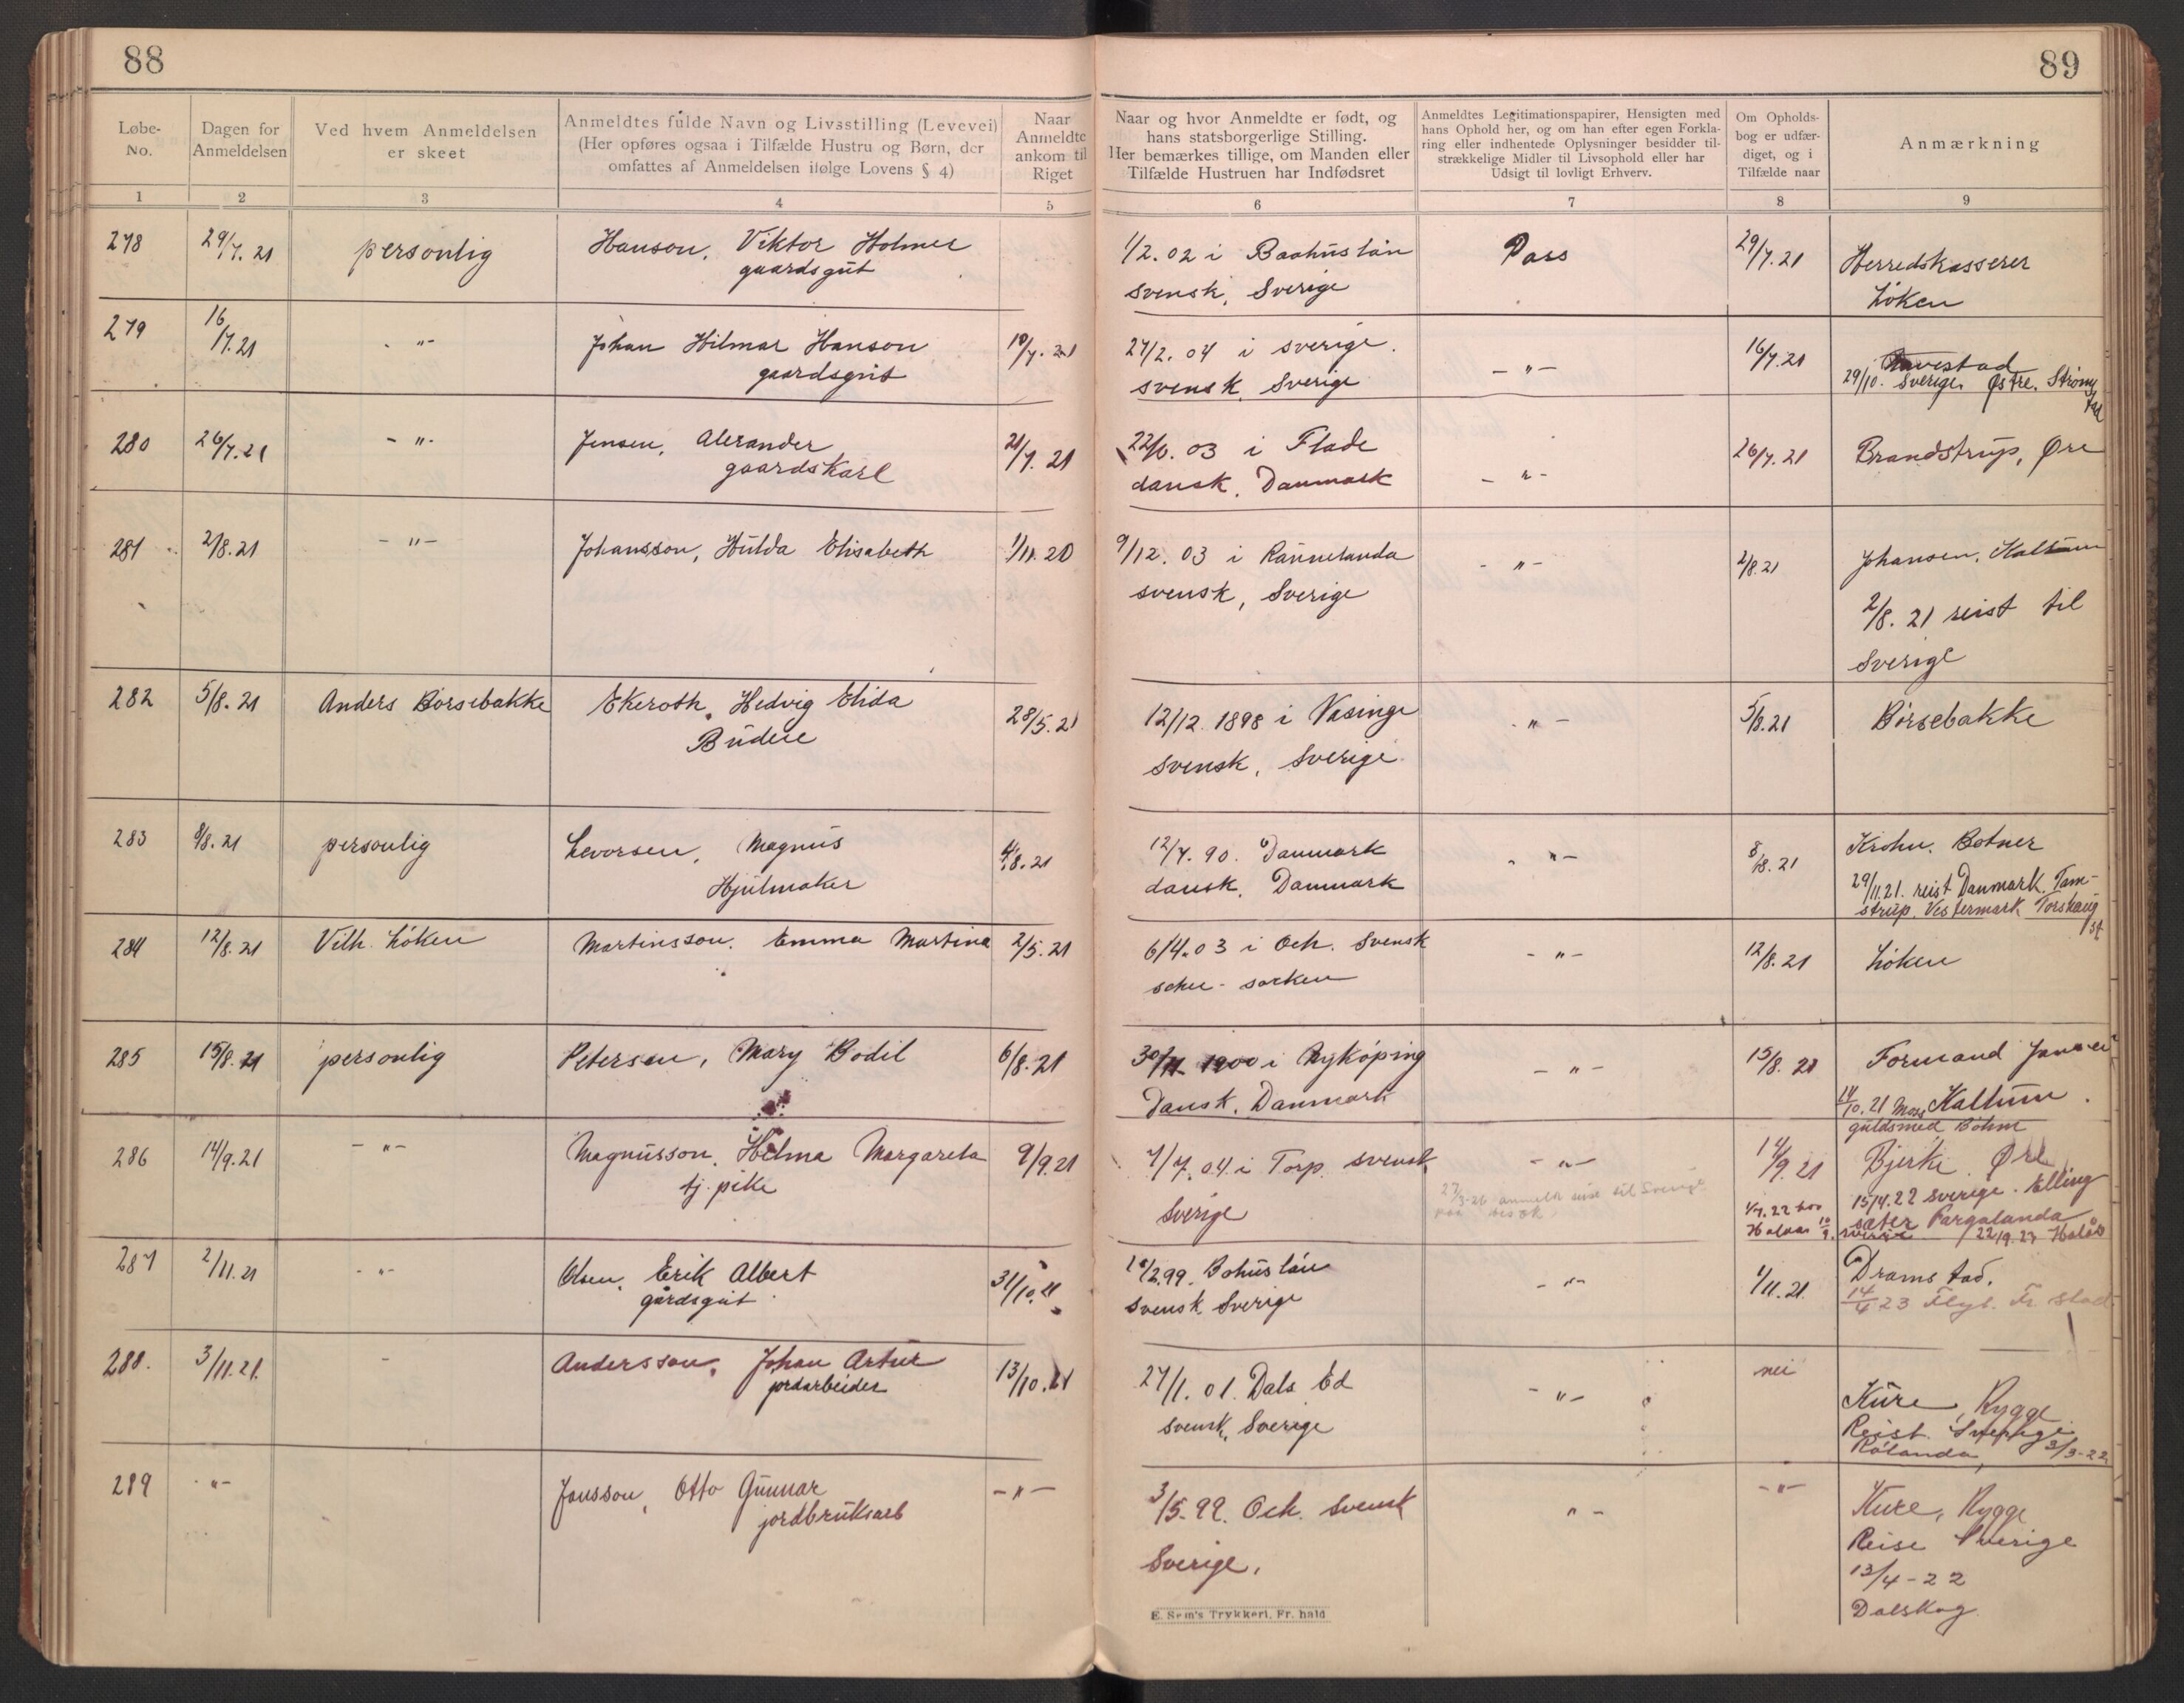 88
89
Løbe-No.
Dagen for Anmeldelsen
Ved hvem Anmeldelsen er skeet
Anmeldtes fulde Navn og Livsstilling (Levevei)
(Her opføres ogsaa i Tilfælde Hustru og Børn, der
omfattes af Anmeldelsen ifølge Lovens § 4)
Naar Anmeldte ankom til Riget
Naar og hvor Anmeldte er født, og
hans statsborgerlige Stilling.
Her bemærkes tillige, om Manden eller
Tilfælde Hustruen har Indfødsret
Anmeldtes Legitimationspapirer, Hensigten med
hans Ophold her, og om han efter egen Forkla-
ring eller indhentede Oplysninger besidder til-
strækkelige Midler til Livsophold eller har
Udsigt til lovligt Erhverv.
Om Opholds-
bog er udfær-
diget, og i
Tilfælde naar
Anmærkning
1 2 3 4 5 6 7 8 9
278 29/7.21 personlig Hanson, Viktor Holmer 1/2.02 i Baahuslän Pass 29/7.21 Herredskasserer
gaardsgut svensk, Sverige Löken
279 16/7.21 - " - Johan Hilmar Hanson 10/7.21 27/2.04 i sverige. - " - 16/7.21
gaardsgut svensk Sverige 29/10. Sverige. Østre. Strömstad
280 26/7.21 - " - Jensen, Alexander 21/7.21 22/6.03 i Flade - " - 26/7.21 Brandstrup, Øre
gaardskarl dansk, Danmark
281 2/8.21 - " - Johansson, Hulda Elisabeth 1/11.20 9/12.03 i Rännelanda - " - 2/8.21 Johansen, Kaltum
svensk, Sverige 2/8.21 reist til
Sverige
282 5/8.21 Anders Börsebakke Ekeroth, Hedvig Elida 28/5.21 12/12 1898 i Vasinge - " - 5/8.21 Börsebakke
Budeie svensk, Sverige
283 8/8.21 personlig Levorsen, Magnus 4/8.21 12/7.90. Danmark - " - 8/8.21 Krohn. Botner
Hjulmaker dansk, Danmark 29/11.21. reist Danmark. Tam-
strup. Vestermark
284 12/8.21 Vilh. Löken Martinsson, Emma Martina 2/5.21 6/4.03 i Och. Svensk - " - 12/8.21 Löken
285 15/8.21 personlig Petersen, Mary Bodil 6/8.21 30/11 1900 i Nyköping - " - 15/8.21 Formand
Dansk. Danmark 14/10.21 Moss Kaltum
guldsmed Böhm
286 14/9.21 - " - Magnusson, Helma Margareta 9/9.21 7/7.04 i Torp. svensk - " - 14/9.21 Bjerke, Øre
tj. pike Sverige 27/3-26 anmeldt reise til Sverige
paa besøk 15/4.22 sverige. Elling
sæter Färgalanda
22/9.23
287 2/11.21 - " - Olsen, Erik Albert 31/10.21 18/2.99. Bohuslän - " - 1/11.21. Dramstad.
gårdsgut svensk Sverige 14/4 23 Flyt. Fr. stad
288. 3/11.21. - Andersson, Johan Artur 13/10.21 27/1.01. Dals Ed - " - nei Kure, Rygge
jordarbeider svensk, Sverige Reist. Sverige
Rölanda, 3/3-22
289 - " - Jonsson, Otto Gunnar - " - 3/5-99. Och. Svensk " - - " - Kure, Rygge
jordbruksarb Sverige. Reise Sverige
13/4-22
Dalskog
E. Sem's Trykkeri, Fr. hald